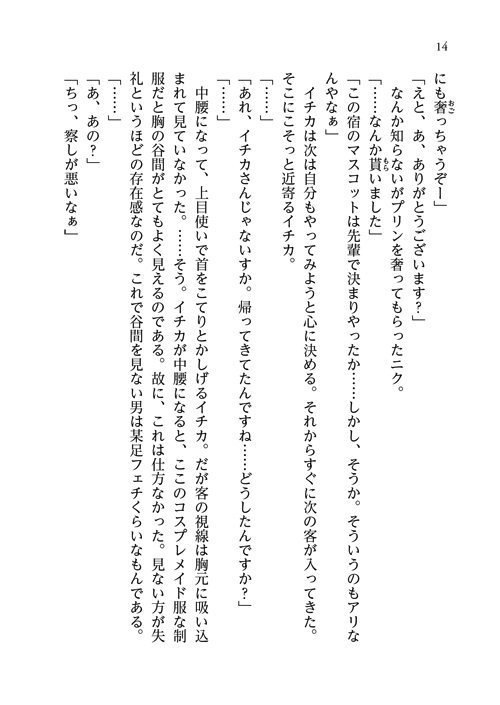 14
にも奢っちゃうぞー」
おご
「えと、あ、ありがとうございます?」
なんか知らないがプリンを奢ってもらったニク。
「……なんか貰いました」
もら
「この宿のマスコットは先輩で決まりやったか……しかし、そうか。そういうのもアリな
んやなぁ」
イチカは次は自分もやってみようと心に決める。それからすぐに次の客が入ってきた。
そこにこそっと近寄るイチカ。
「……」
「あれ、イチカさんじゃないすか。帰ってきてたんですね……どうしたんですか?」
「……」
中腰になって、上目使いで首をこてりとかしげるイチカ。だが客の視線は胸元に吸い込
まれて見ていなかった。……そう。イチカが中腰になると、ここのコスプレメイド服な制
服だと胸の谷間がとてもよく見えるのである。故に、これは仕方なかった。見ない方が失
礼というほどの存在感なのだ。これで谷間を見ない男は某足フェチくらいなもんである。
「……」
「あ、あの?」
「ちっ、察しが悪いなぁ」